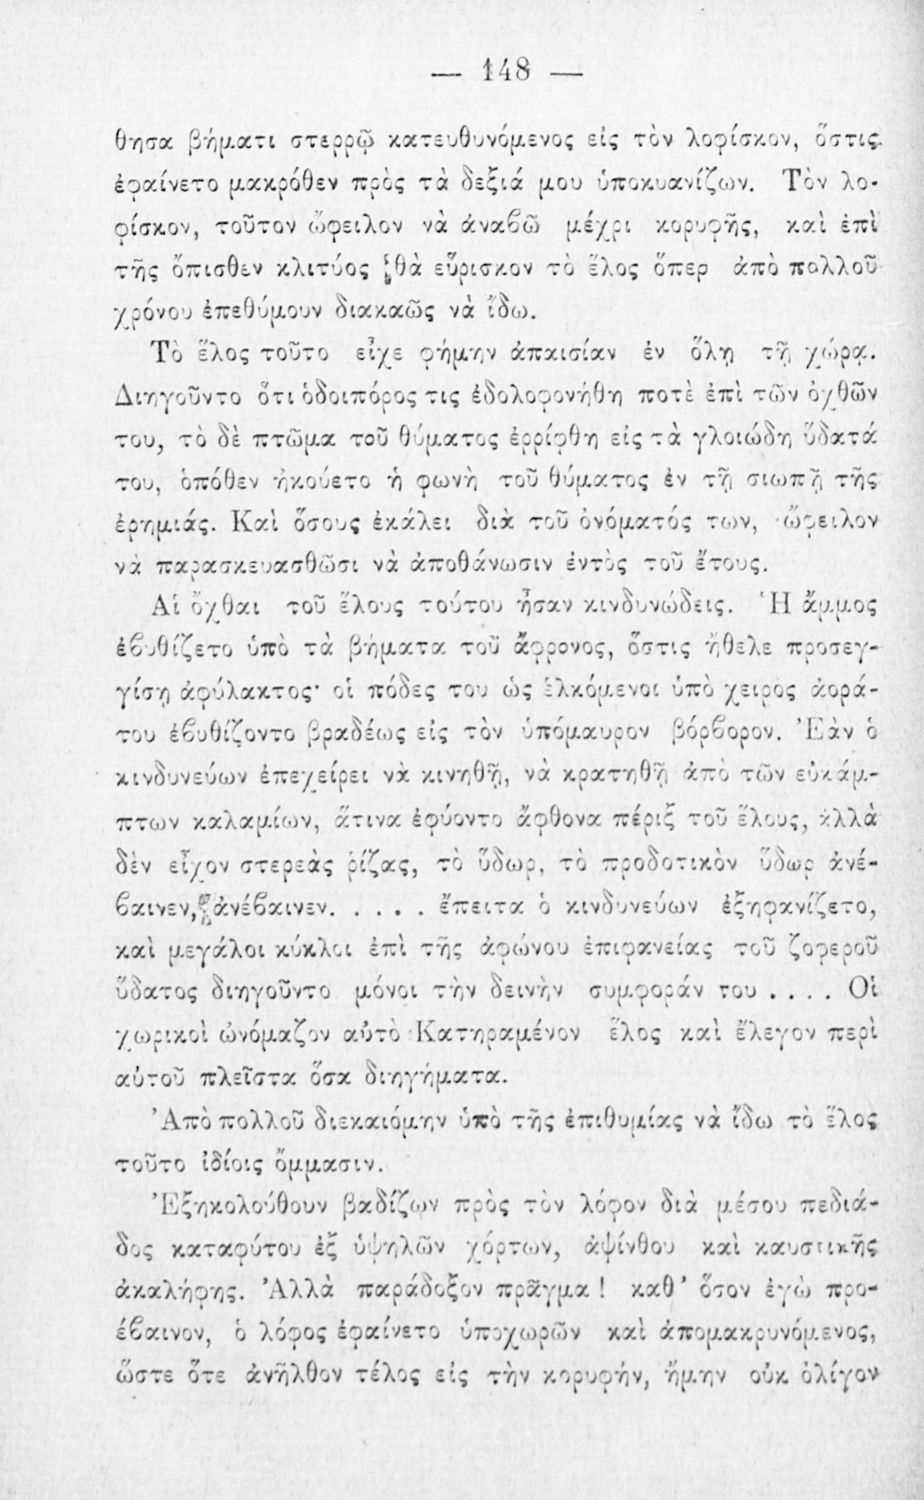 — 148 —
θησα βήματι στερρῷ κατευθυνόμενος εἰς τὸν λοφίσκον, ὅστις
ἐφαίνετο μακρόθεν πρὸς τὰ δεξιά μου ὑποκυανίζων. Τὸν λο-
φίσκον, τοῦτον ὤφειλον νὰ ἀναβῶ μέχρι κορυφῆς, καὶ ἐπὶ
τῆς ὄπισθεν κλιτύος θὰ εὕρισκον τὸ ἕλος ὅπερ ἀπὸ πολλοῦ
χρόνου ἐπεθύμουν διακαῶς νὰ ἴδω.
Τὸ ἕλος τοῦτο εἶχε φήμην ἀπαισίαν ἐν ὅλῃ τῇ χώρᾳ.
Διηγοῦντο ὅτι ὁδοιπόρος τις ἐδολοφονήθη ποτὲ ἐπὶ τῶν ὀχθῶν
του, τὸ δὲ πτῶμα τοῦ θύματος ἐρρίφθη εἰς τὰ γλοιώδη ὕδατά
του, ὁπόθεν ἠκούετο ἡ φωνὴ τοῦ θύματος ἐν τῇ σιωπῇ τῆς
ἐρημιάς. Καὶ ὅσους ἐκάλει διὰ τοῦ ὀνόματός των, ὤφειλον
νὰ παρασκευασθῶσι νὰ ἀποθάνωσιν ἐντὸς τοῦ ἔτους.
Αἱ ὄχθαι τοῦ ἕλους τούτου ἦσαν κινδυνώδεις. Ἡ ἄμμος
ἐβυθίζετο ὑπὸ τὰ βήματα τοῦ ἄφρονος, ὅστις ἤθελε προσεγ-
γίσῃ ἀφύλακτος· οἱ πόδες του ὡς ἑλκόμενοι ὑπὸ χειρὸς ἀορά-
του ἐβυθίζοντο βραδέως εἰς τὸν ὑπόμαυρον βόρβορον. Ἐὰν ὁ
κινδυνεύων ἐπεχείρει νὰ κινηθῇ, νὰ κρατηθῇ ἀπὸ τῶν εὐκάμ-
πτων καλαμίων, ἅτινα ἐφύοντο ἄφθονα πέριξ τοῦ ἕλους, ἀλλὰ
δὲν εἶχον στερεὰς ῥίζας, τὸ ὕδωρ, τὸ προδοτικὸν ὕδωρ ἀνέ-
βαινεν, ἀνέβαινεν. . . . . . ἔπειτα ὁ κινδυνεύων ἐξηφανίζετο,
καὶ μεγάλοι κύκλοι ἐπὶ τῆς ἀφώνου ἐπιφανείας τοῦ ζοφεροῦ
ὕδατος διηγοῦντο μόνοι τὴν δεινὴν συμφοράν του . . . . Οἱ
χωρικοὶ ὠνόμαζον αὐτὸ Κατηραμένον ἕλος καὶ ἔλεγον περὶ
αὐτοῦ πλεῖστα ὅσα διηγήματα.
Ἀπὸ πολλοῦ διεκαιόμην ὑπὸ τῆς ἐπιθυμίας νὰ ἴδω τὸ ἕλος
τοῦτο ἰδίοις ὄμμασιν.
Ἐξηκολούθουν βαδίζων πρὸς τὸν λόφον διὰ μέσου πεδιά-
δος καταφύτου ἐξ ὑψηλῶν χόρτων, ἀψίνθου καὶ καυστικῆς
ἀκαλήφης. Ἀλλὰ παράδοξον πρᾶγμα ! καθ’ ὅσον ἐγὼ προ-
έβαινον, ὁ λόφος ἐφαίνετο ὑποχωρῶν καὶ ἀπομακρυνόμενος,
ὥστε ὅτε ἀνῆλθον τέλος εἰς τὴν κορυφήν, ἤμην οὐκ ὀλίγον